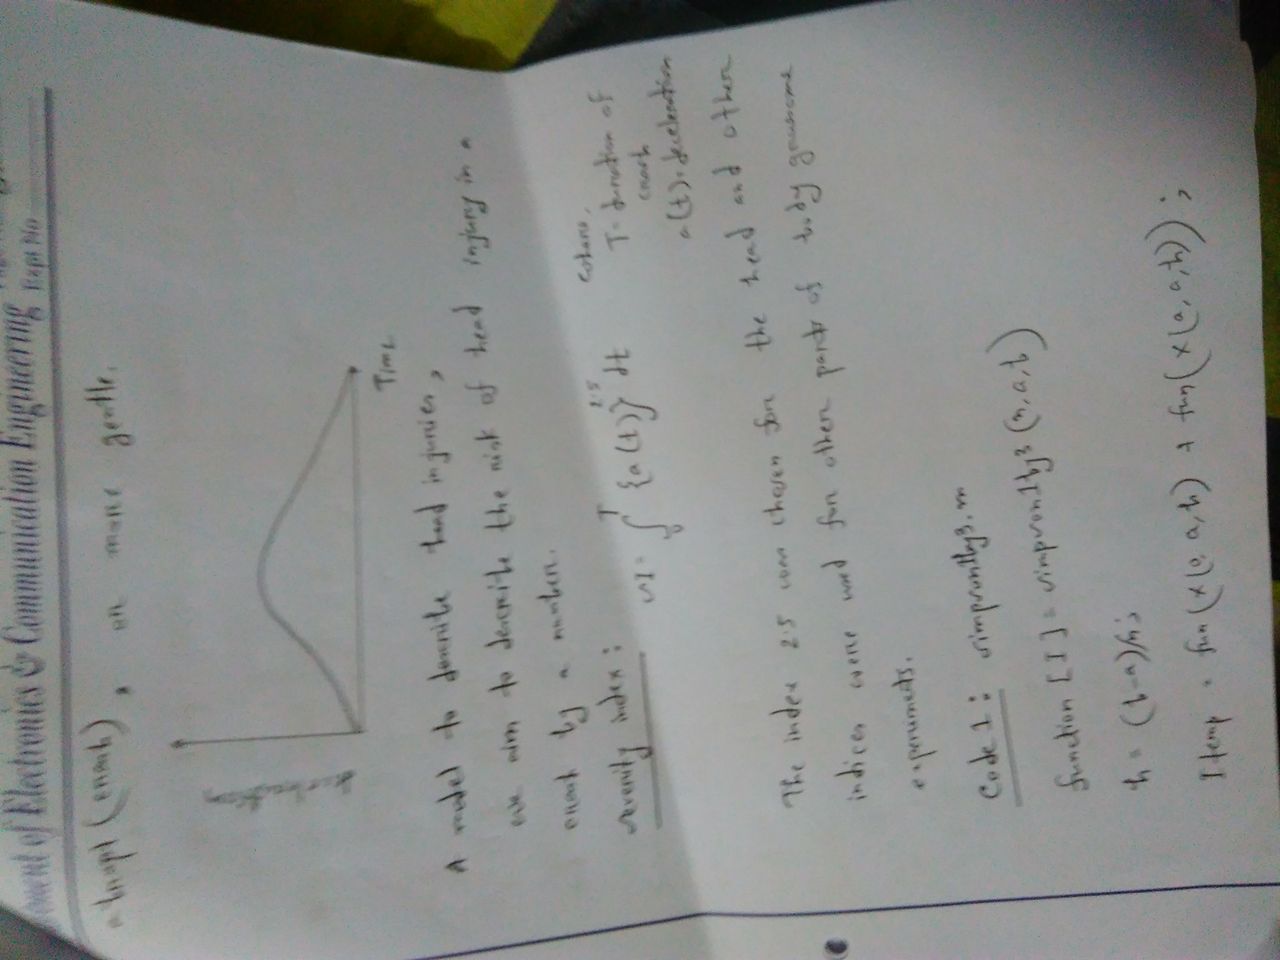 of Electronics & Communication Engineering
Expt No
(crash), or more gentle.
deceleration
Time
A model to describe head injuries,
we aim to describe the risk of head injury in a
crash by a number.
severity index: SI = ∫₀ᵀ {a(t)}^2.5 dt
T = duration of
crash
a(t) = deceleration
The index 2.5 was chosen for the head and other
indices were used for other parts of body
experiments.
Code 1: simpson1by3.m
function [I] = simpson1by3 (n,a,b)
h = (b-a)/n;
Itemp = fun(x(0, a, h) + fun(x(a, a, h));